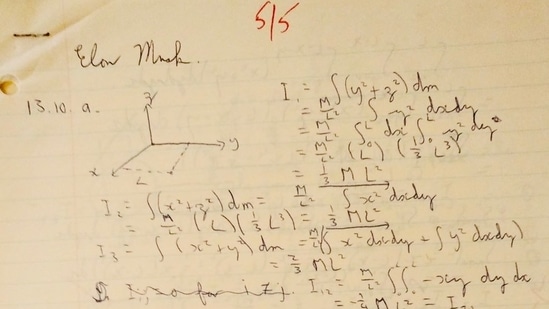 5/5
Elon Musk.
13.10. a.
z
y
x
L
I₁ = ∫(y² + z²) dm
= M/L² ∫ y² dxdy
= M/L² ∫₀ᴸ dx ∫₀ᴸ y² dy
= M/L² (L) (1/3 L³)
= 1/3 ML²
I₂ = ∫(x² + z²) dm = M/L² ∫ x² dxdy
= M/L² (L)(1/3 L³) = 1/3 ML²
I₃ = ∫ (x² + y²) dm = M/L² (∫ x² dxdy + ∫ y² dxdy)
= 2/3 ML²
I₁₂ = M/L² ∫₀ᴸ∫₀ᴸ -xy dy dx
= -1/4 ML² =